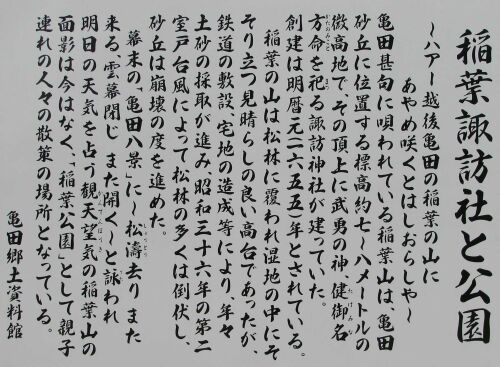 稲葉諏訪社と公園
～ハアー越後亀田の稲葉の山に
あやめ咲くとはしおらしや～
亀田甚句に唄われている稲葉山は、亀田
砂丘に位置する標高約七～八メートルの
微高地で、その頂上に武勇の神、健御名
方命を祀る諏訪神社が建っていた。
創建は明暦元(一六五五)年とされている。
稲葉の山は松林に覆われ湿地の中にそ
そり立つ見晴らしの良い高台であったが、
鉄道の敷設、宅地の造成等により、年々
土砂の採取が進み昭和三十六年の第二
室戸台風によって松林の多くは倒伏し、
砂丘は崩壊の度を進めた。
幕末の「亀田八景」に～松濤去りまた
来る、雲幕閉じ また開く～と詠われ
明日の天気を占う観天望気の稲葉山の
面影は今はなく、「稲葉公園」として親子
連れの人々の散策の場所となっている。
亀田郷土資料館